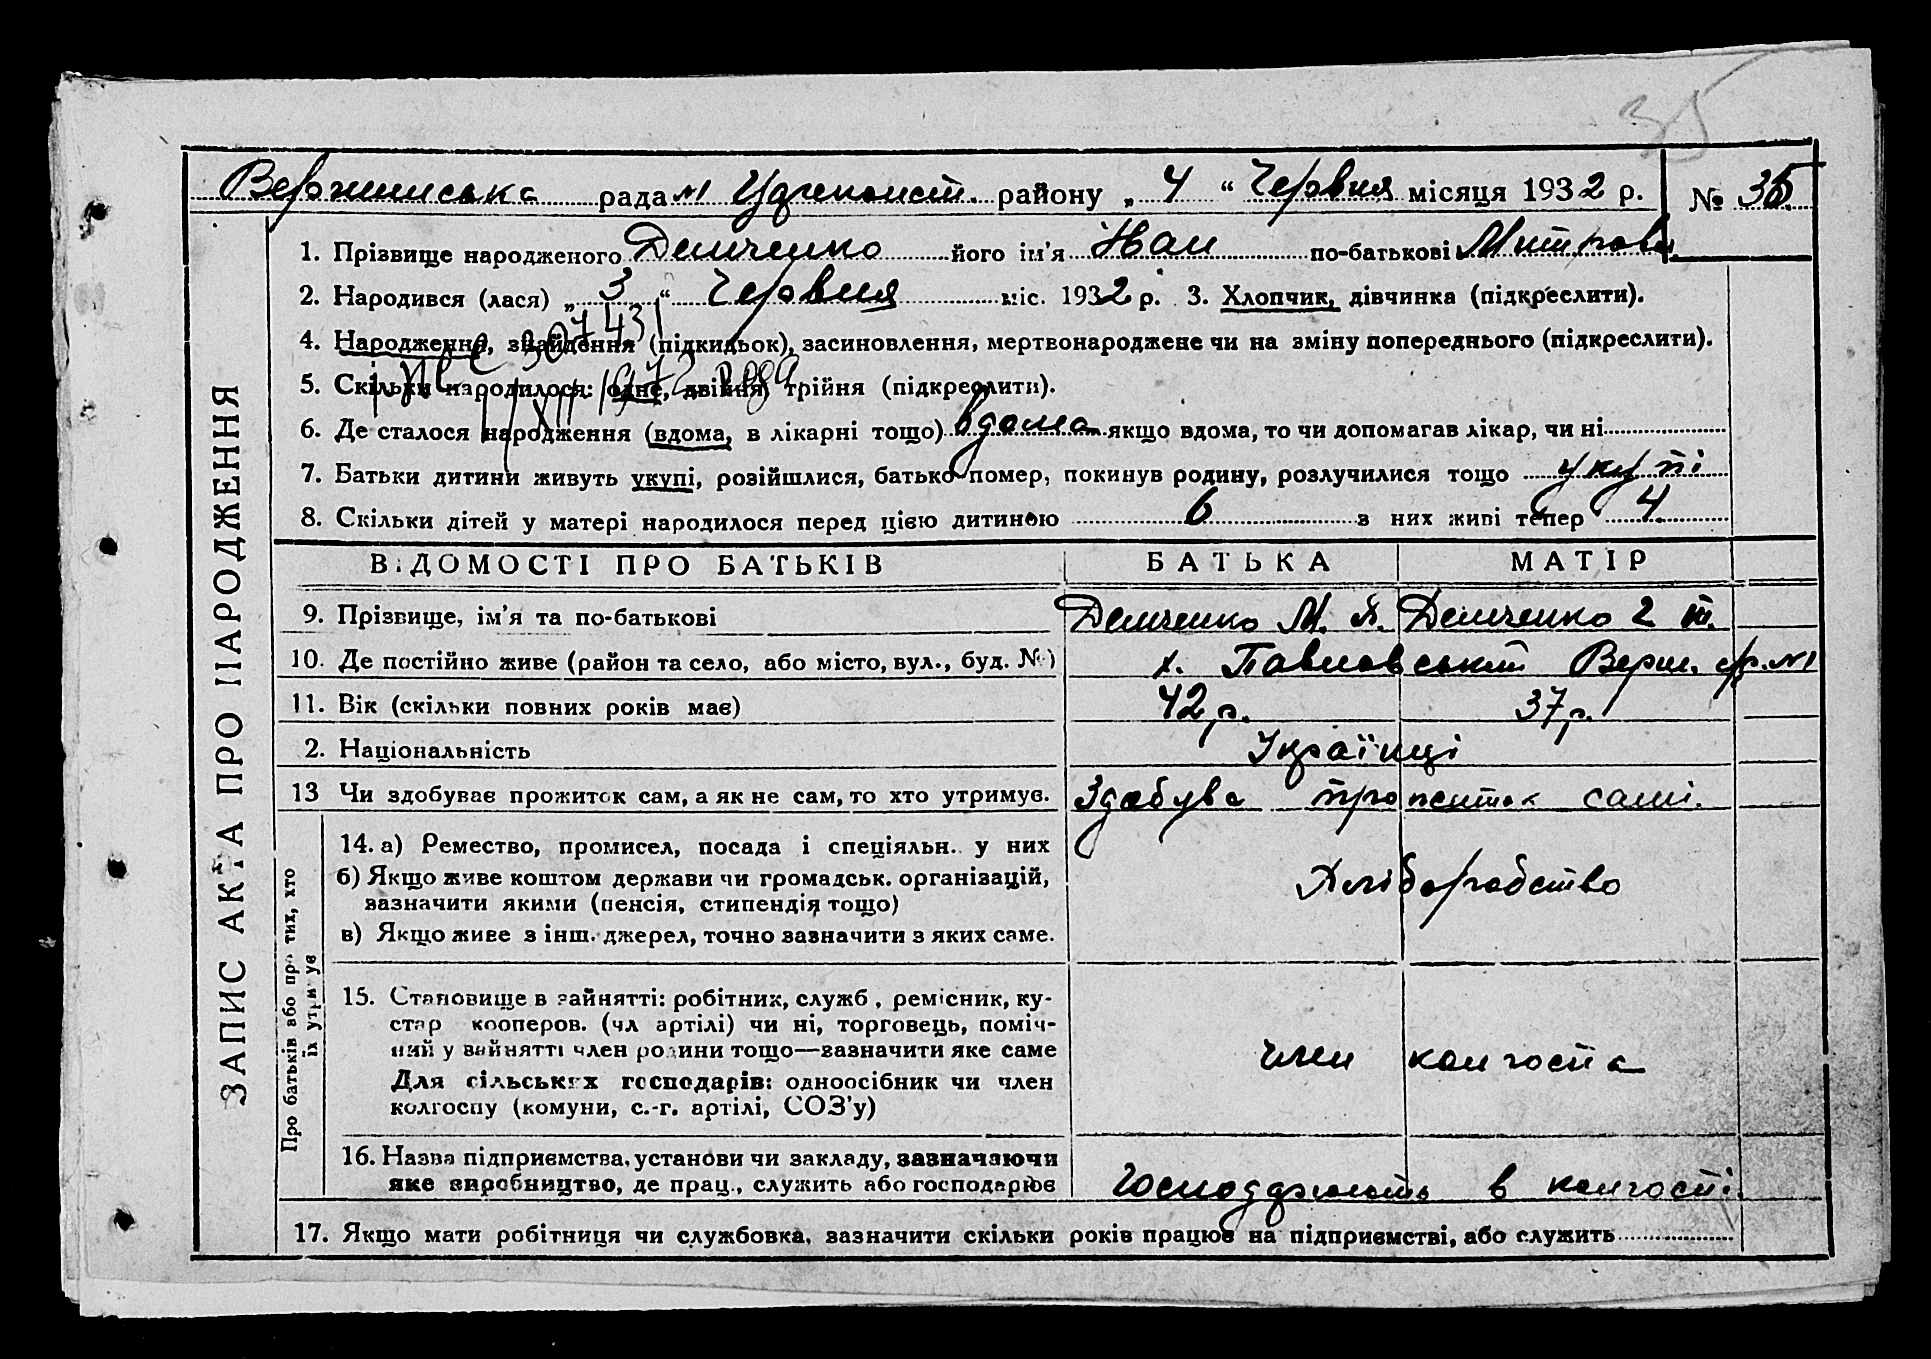 35
рада №1 району „ 4 “ Червня місяця 1932 р. № 35.
1. Прізвище народженого Демченко його ім'я Іван по-батькові
2. Народився (лася) „ 3 “ Червня міс. 1932 р. 3. Хлопчик, дівчинка (підкреслити).
4. Народження, знайдення (підкидьок), засиновлення, мертвонароджене чи на зміну попереднього (підкреслити).
5. Скільки народилося: одне, двійня, трійня (підкреслити).
6. Де сталося народження (вдома, в лікарні тощо) вдома якщо вдома, то чи допомагав лікар, чи ні
7. Батьки дитини живуть укупі, розійшлися, батько помер, покинув родину, розлучилися тощо укупі
8. Скільки дітей у матері народилося перед цією дитиною 6 з них живі тепер 4
ЗАПИС АКТА ПРО НАРОДЖЕННЯ
ВІДОМОСТІ ПРО БАТЬКІВ БАТЬКА МАТІР
9. Прізвище, ім'я та по-батькові Демченко М. Демченко
10. Де постійно живе (район та село, або місто, вул., буд. №) х. Павловський Верш. с/р. №1
11. Вік (скільки повних років має) 42 р. 37 р.
2. Національність Українці
13 Чи здобуває прожиток сам, а як не сам, то хто утримує. Здобува прожиток самі.
Про батьків або про тих, хто
їх утримує
14. а) Ремество, промисел, посада і спеціяльн. у них
б) Якщо живе коштом держави чи громадськ. організацій,
зазначити якими (пенсія, стипендія тощо) Хліборобство
в) Якщо живе з інш. джерел, точно зазначити з яких саме.
15. Становище в зайнятті: робітник, служб., ремісник, ку-
стар кооперов. (чл артілі) чи ні, торговець, поміч-
ний у зайнятті член родини тощо—зазначити яке саме член колгоспа
Для сільських господарів: одноосібник чи член
колгоспу (комуни, с.-г. артілі, СОЗ'у)
16. Назва підприємства, установи чи закладу, зазначаючи
яке виробництво, де прац., служить або господарює Господарюють в колгоспі.
17. Якщо мати робітниця чи службовка, зазначити скільки років працює на підприємстві, або служить